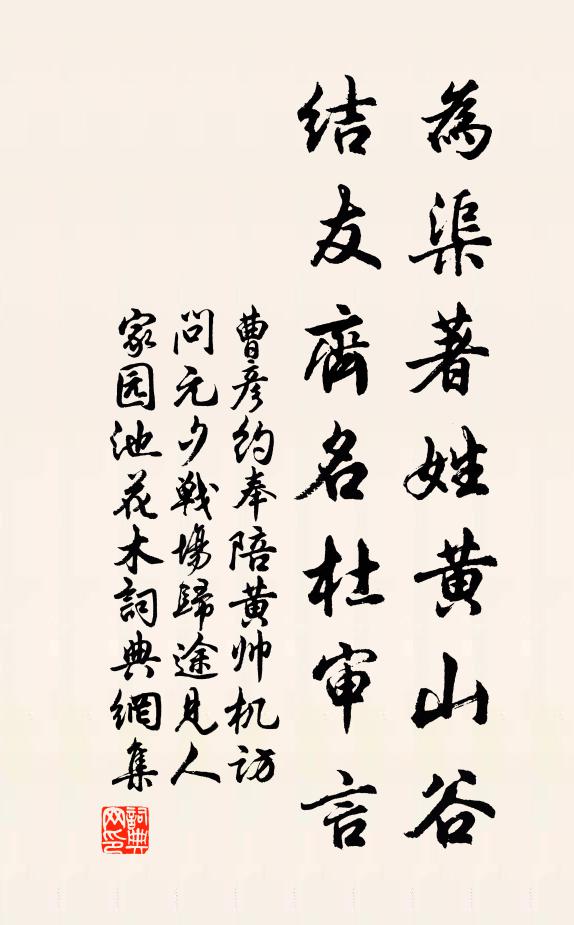 為渠著姓黄山谷
结友齊名杜审言
曹彦约奉陪黄帅机访
问元夕戰場歸途见人
家园池花木詞典網集
詞典网印